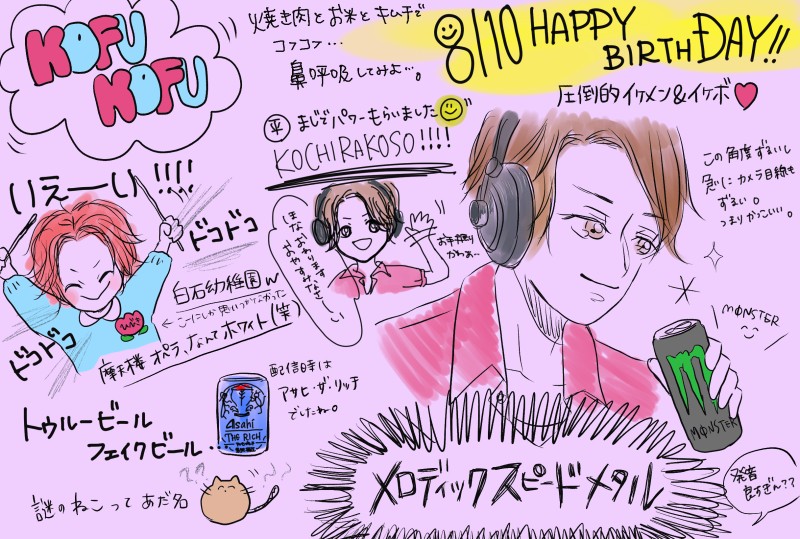 KOFU
KOFU
焼き肉とお米とキムチで
コフコフ…
鼻呼吸してみよ…。
8/10 HAPPY
BIRTHDAY!!
圧倒的イケメン&イケボ
㊥ まじでパワーもらいました
KOCHIRAKOSO!!!!
この角度ずるいし
急にカメラ目線も
ずるい。
つまりかっこいい。
いえーい!!!!
ドコドコ
ドコドコ
ひびき
白石幼稚園w
摩天楼 オペラ、なんてホワイト(笑)
ほなおわります
おやすみなさーい
お手振り
かわぁ…
MØNSTER
MØNSTER
トゥルービール
フェイクビール…
Asahi
THE RICH
配信日時は
アサヒ・ザ・リッチ
でしたね。
謎のねこってあだ名
メロディックスピードメタル
発音
良すぎん??